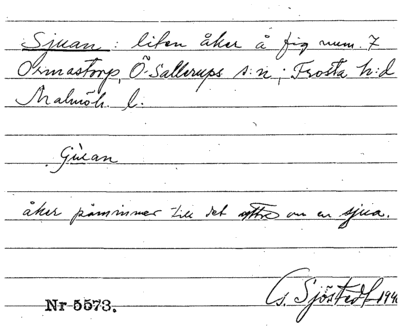 Sjuan: liten åker å fig num. 7
Ormastorp, Ö. Sallerups s:n; Frosta h:d
Malmöh. l.
åker påminner till det yttre om en sjua.
G. Sjöstedt 1940
Nr 5573.